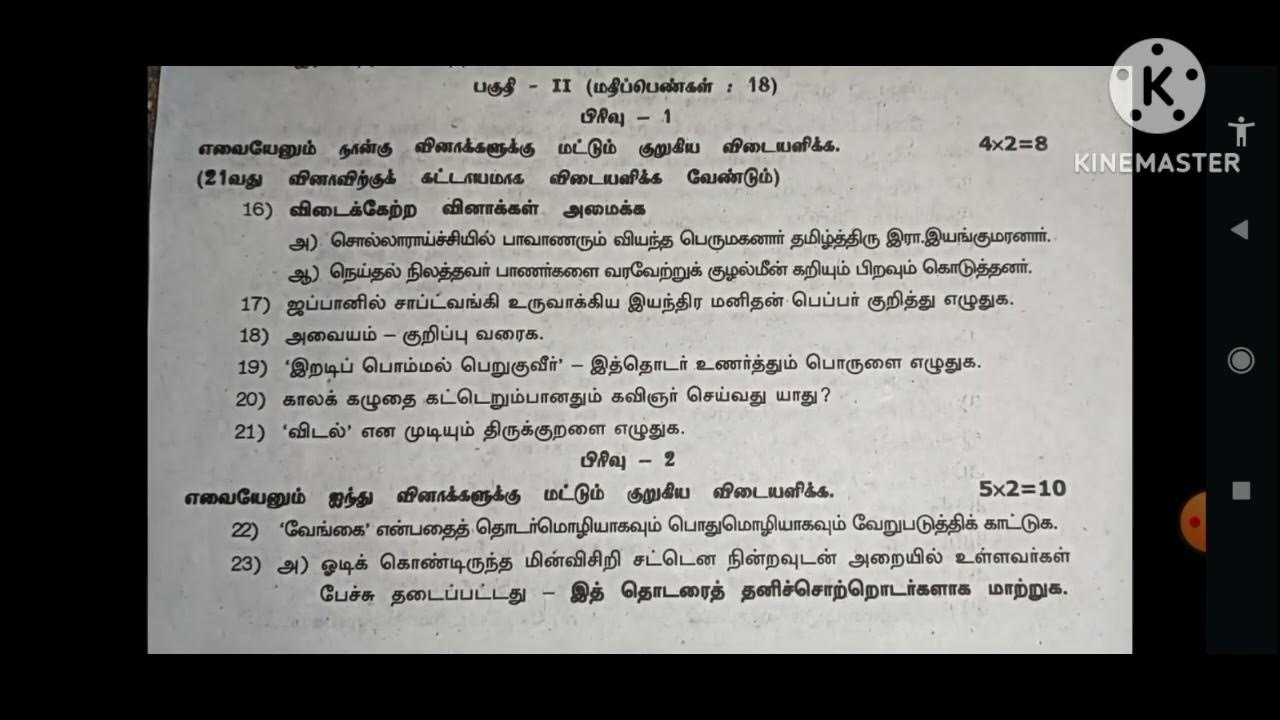 பகுதி - II (மதிப்பெண்கள் : 18)
பிரிவு - 1
எவையேனும் நான்கு வினாக்களுக்கு மட்டும் குறுகிய விடையளிக்க. 4x2=8
(21வது வினாவிற்குக் கட்டாயமாக விடையளிக்க வேண்டும்)
16) விடைக்கேற்ற வினாக்கள் அமைக்க
அ) சொல்லாராய்ச்சியில் பாவாணரும் வியந்த பெருமகனார் தமிழ்த்திரு இரா.இயங்குமரனார்.
ஆ) நெய்தல் நிலத்தவர் பாணர்களை வரவேற்றுக் குழல்மீன் கறியும் பிறவும் கொடுத்தனர்.
17) ஜப்பானில் சாப்ட்வங்கி உருவாக்கிய இயந்திர மனிதன் பெப்பர் குறித்து எழுதுக.
18) அவையம் – குறிப்பு வரைக.
19) ‘இறடிப் பொம்மல் பெறுகுவீர்’ – இத்தொடர் உணர்த்தும் பொருளை எழுதுக.
20) காலக் கழுதை கட்டெறும்பானதும் கவிஞர் செய்வது யாது?
21) ‘விடல்’ என முடியும் திருக்குறளை எழுதுக.
பிரிவு - 2
எவையேனும் ஐந்து வினாக்களுக்கு மட்டும் குறுகிய விடையளிக்க. 5x2=10
22) ‘வேங்கை’ என்பதைத் தொடர்மொழியாகவும் பொதுமொழியாகவும் வேறுபடுத்திக் காட்டுக.
23) அ) ஓடிக் கொண்டிருந்த மின்விசிறி சட்டென நின்றவுடன் அறையில் உள்ளவர்கள்
பேச்சு தடைப்பட்டது – இத் தொடரைத் தனிச்சொற்றொடர்களாக மாற்றுக.
K
KINEMASTER